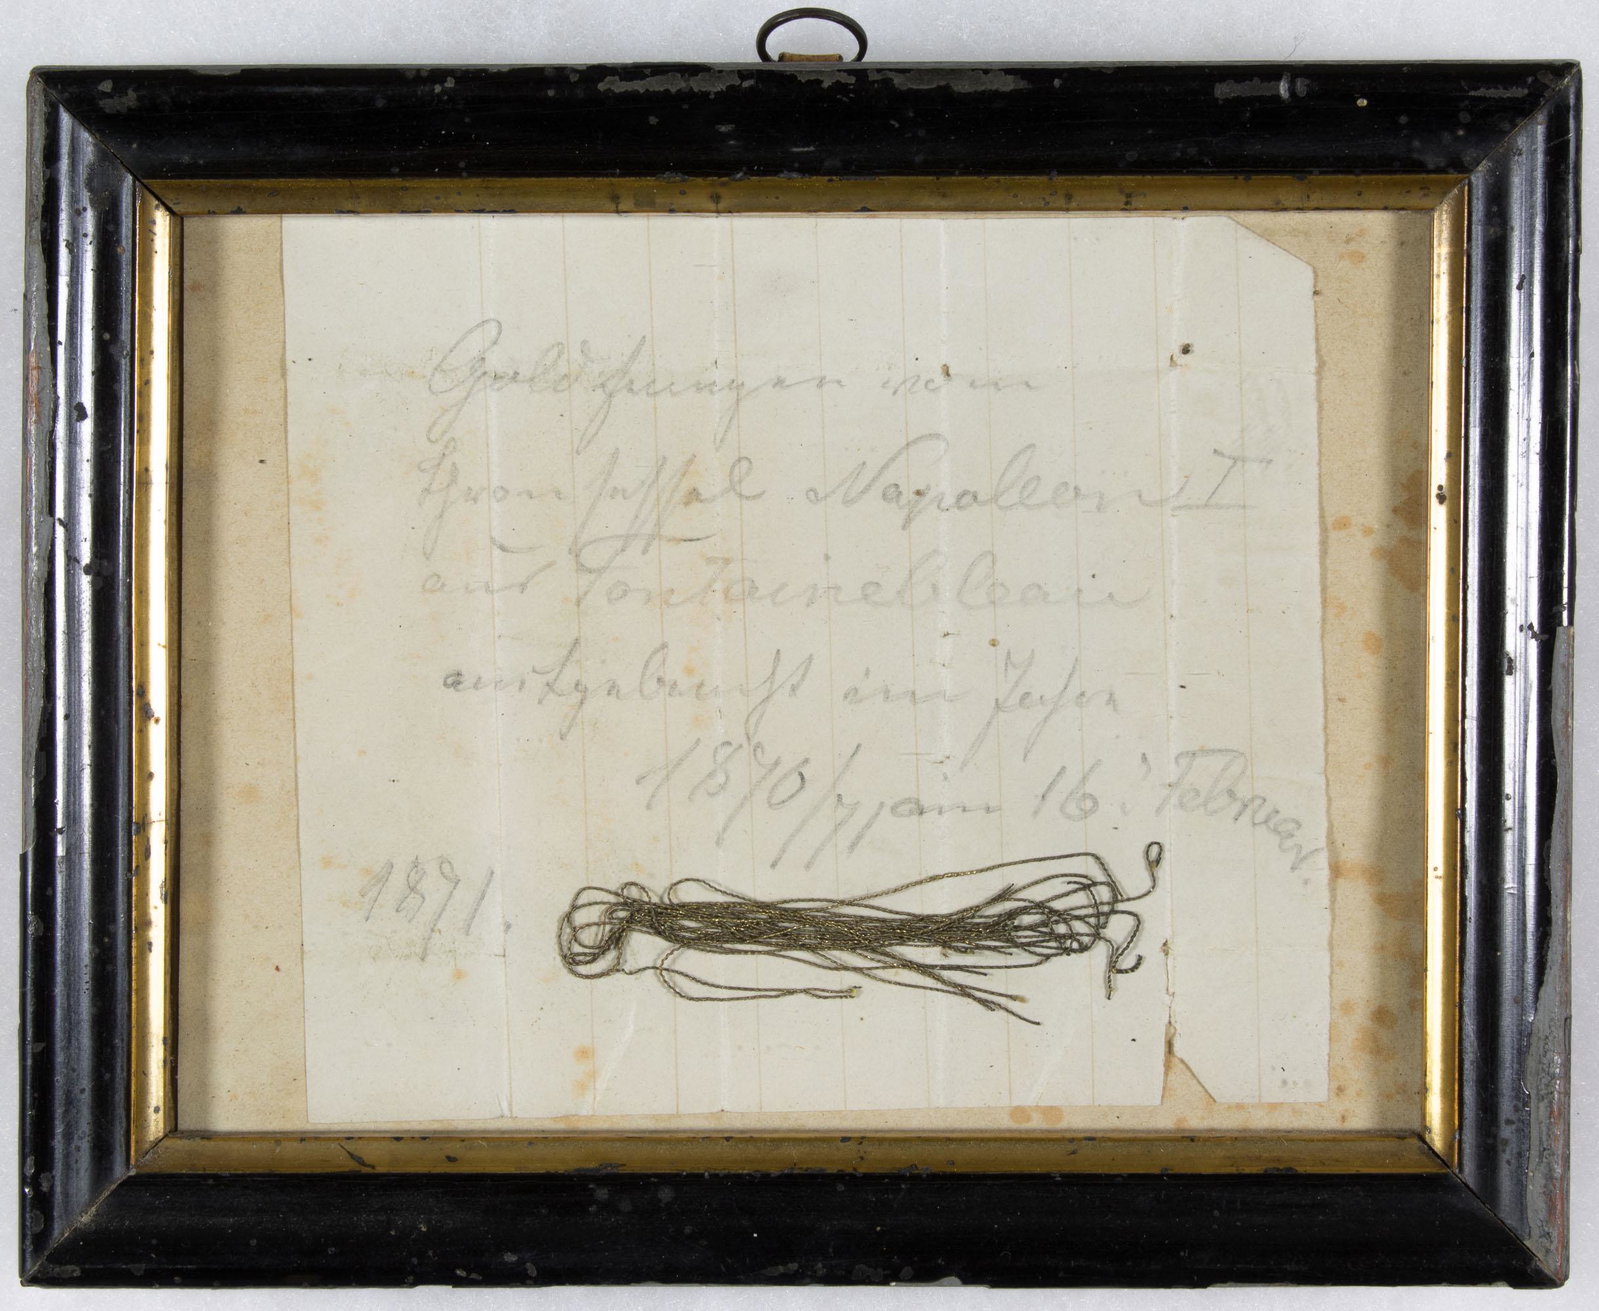 Goldfransen vom
Thronsessel Napoleon I
aus Fontainebleau
mitgebracht im Jahre
1870/71 am 16. Februar.
1871.